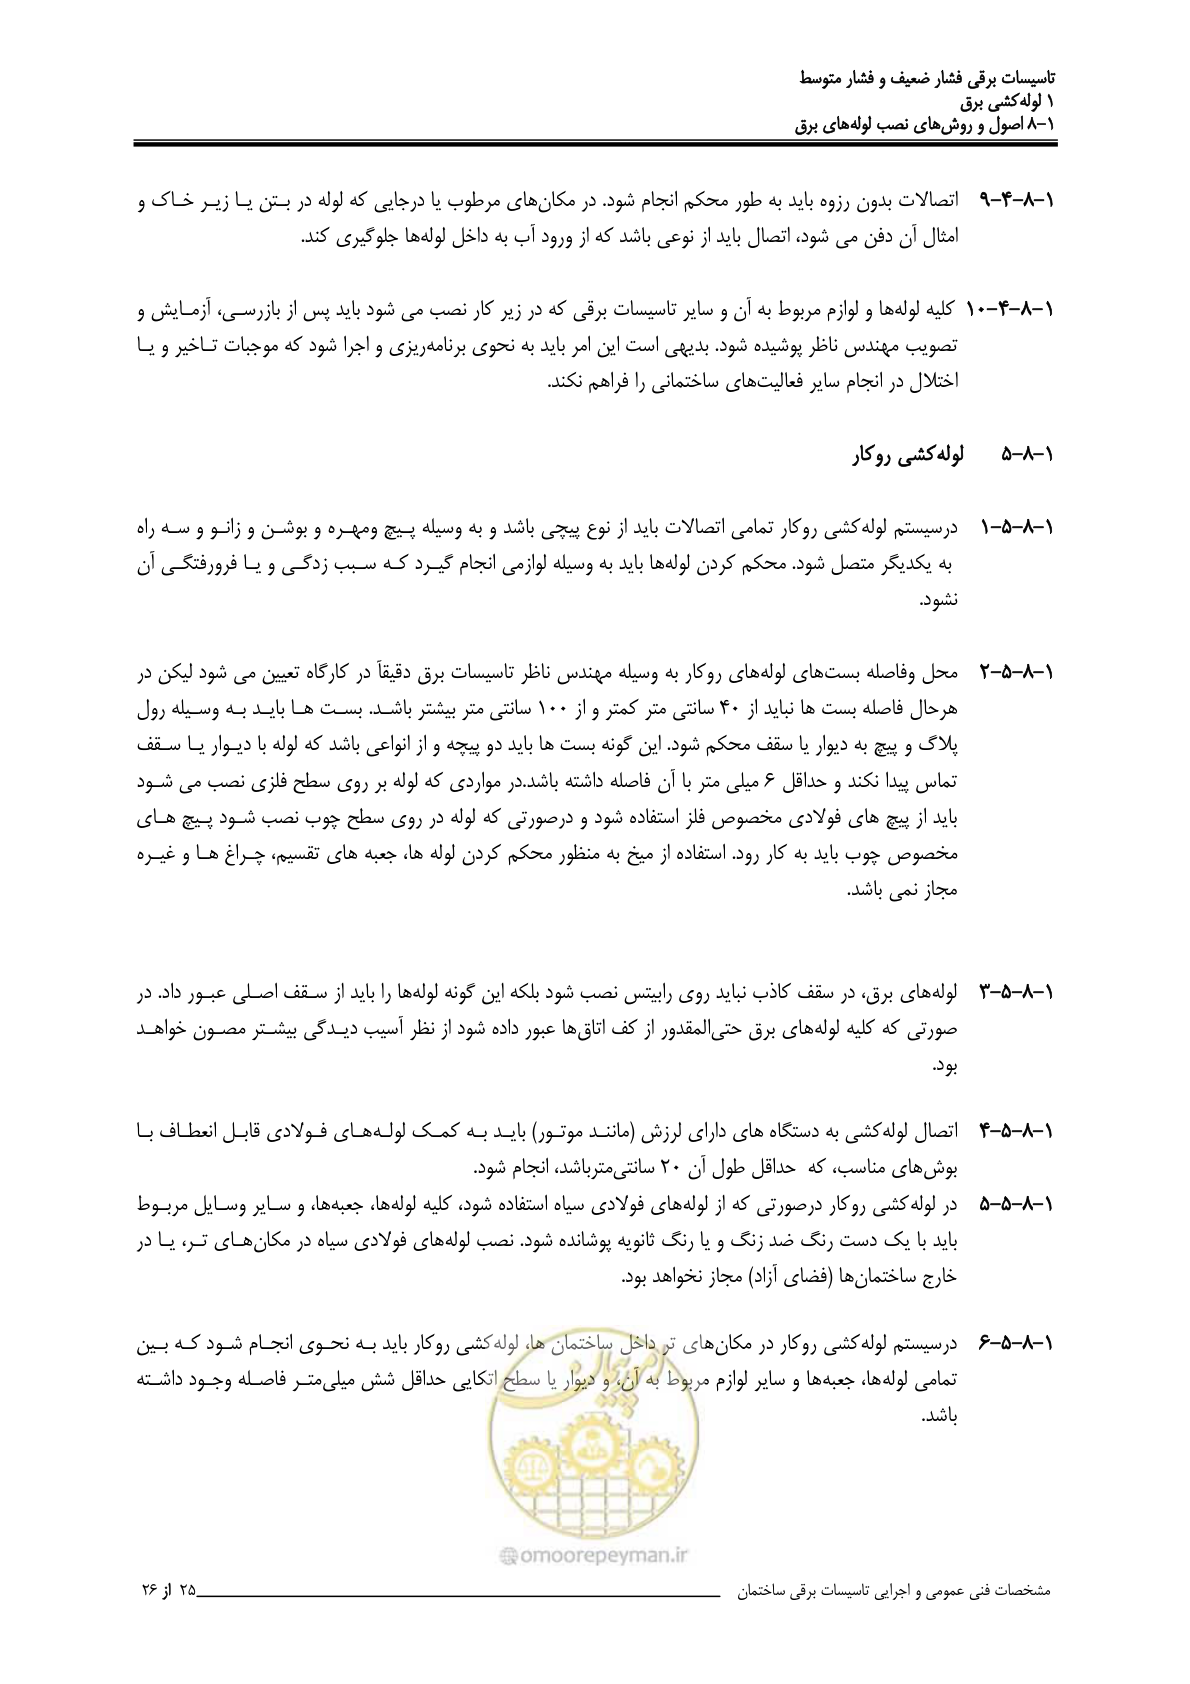 تاسیسات برقی فشار ضعیف و فشار متوسط
۱ لوله‌کشی برق
۱-۸ اصول و روش‌های نصب لوله‌های برق
۱-۸-۴-۹ اتصالات بدون رزوه باید به طور محکم انجام شود. در مکان‌های مرطوب یا درجایی که لوله در بـتن یـا زیـر خـاک و
امثال آن دفن می شود، اتصال باید از نوعی باشد که از ورود آب به داخل لوله‌ها جلوگیری کند.
۱-۸-۴-۱۰ کلیه لوله‌ها و لوازم مربوط به آن و سایر تاسیسات برقی که در زیر کار نصب می شود باید پس از بازرسـی، آزمـایش و
تصویب مهندس ناظر پوشیده شود. بدیهی است این امر باید به نحوی برنامه‌ریزی و اجرا شود که موجبات تـاخیر و یـا
اختلال در انجام سایر فعالیت‌های ساختمانی را فراهم نکند.
۱-۸-۵ لوله‌کشی روکار
۱-۸-۵-۱ درسیستم لوله‌کشی روکار تمامی اتصالات باید از نوع پیچی باشد و به وسیله پـیچ ومهـره و بوشـن و زانـو و سـه راه
به یکدیگر متصل شود. محکم کردن لوله‌ها باید به وسیله لوازمی انجام گیـرد کـه سـبب زدگـی و یـا فرورفتگـی آن
نشود.
۱-۸-۵-۲ محل وفاصله بست‌های لوله‌های روکار به وسیله مهندس ناظر تاسیسات برق دقیقاً در کارگاه تعیین می شود لیکن در
هرحال فاصله بست ها نباید از ۴۰ سانتی متر کمتر و از ۱۰۰ سانتی متر بیشتر باشـد. بسـت هـا بایـد بـه وسـیله رول
پلاگ و پیچ به دیوار یا سقف محکم شود. این گونه بست ها باید دو پیچه و از انواعی باشد که لوله با دیـوار یـا سـقف
تماس پیدا نکند و حداقل ۶ میلی متر با آن فاصله داشته باشد.در مواردی که لوله بر روی سطح فلزی نصب می شـود
باید از پیچ های فولادی مخصوص فلز استفاده شود و درصورتی که لوله در روی سطح چوب نصب شـود پـیچ هـای
مخصوص چوب باید به کار رود. استفاده از میخ به منظور محکم کردن لوله ها، جعبه های تقسیم، چـراغ هـا و غیـره
مجاز نمی باشد.
۱-۸-۵-۳ لوله‌های برق، در سقف کاذب نباید روی رابیتس نصب شود بلکه این گونه لوله‌ها را باید از سـقف اصـلی عبـور داد. در
صورتی که کلیه لوله‌های برق حتی‌المقدور از کف اتاق‌ها عبور داده شود از نظر آسیب دیـدگی بیشـتر مصـون خواهـد
بود.
۱-۸-۵-۴ اتصال لوله‌کشی به دستگاه های دارای لرزش (ماننـد موتـور) بایـد بـه کمـک لولـه‌هـای فـولادی قابـل انعطـاف بـا
بوش‌های مناسب، که حداقل طول آن ۲۰ سانتی‌مترباشد، انجام شود.
۱-۸-۵-۵ در لوله‌کشی روکار درصورتی که از لوله‌های فولادی سیاه استفاده شود، کلیه لوله‌ها، جعبه‌ها، و سـایر وسـایل مربـوط
باید با یک دست رنگ ضد زنگ و یا رنگ ثانویه پوشانده شود. نصب لوله‌های فولادی سیاه در مکان‌هـای تـر، یـا در
خارج ساختمان‌ها (فضای آزاد) مجاز نخواهد بود.
۱-۸-۵-۶ درسیستم لوله‌کشی روکار در مکان‌های تر داخل ساختمان ها، لوله‌کشی روکار باید بـه نحـوی انجـام شـود کـه بـین
تمامی لوله‌ها، جعبه‌ها و سایر لوازم مربوط به آن، و دیوار یا سطح اتکایی حداقل شش میلی‌متـر فاصـله وجـود داشـته
باشد.
امور پیمان
@omoorepeyman.ir
مشخصات فنی عمومی و اجرایی تاسیسات برقی ساختمان ۲۵ از ۲۶